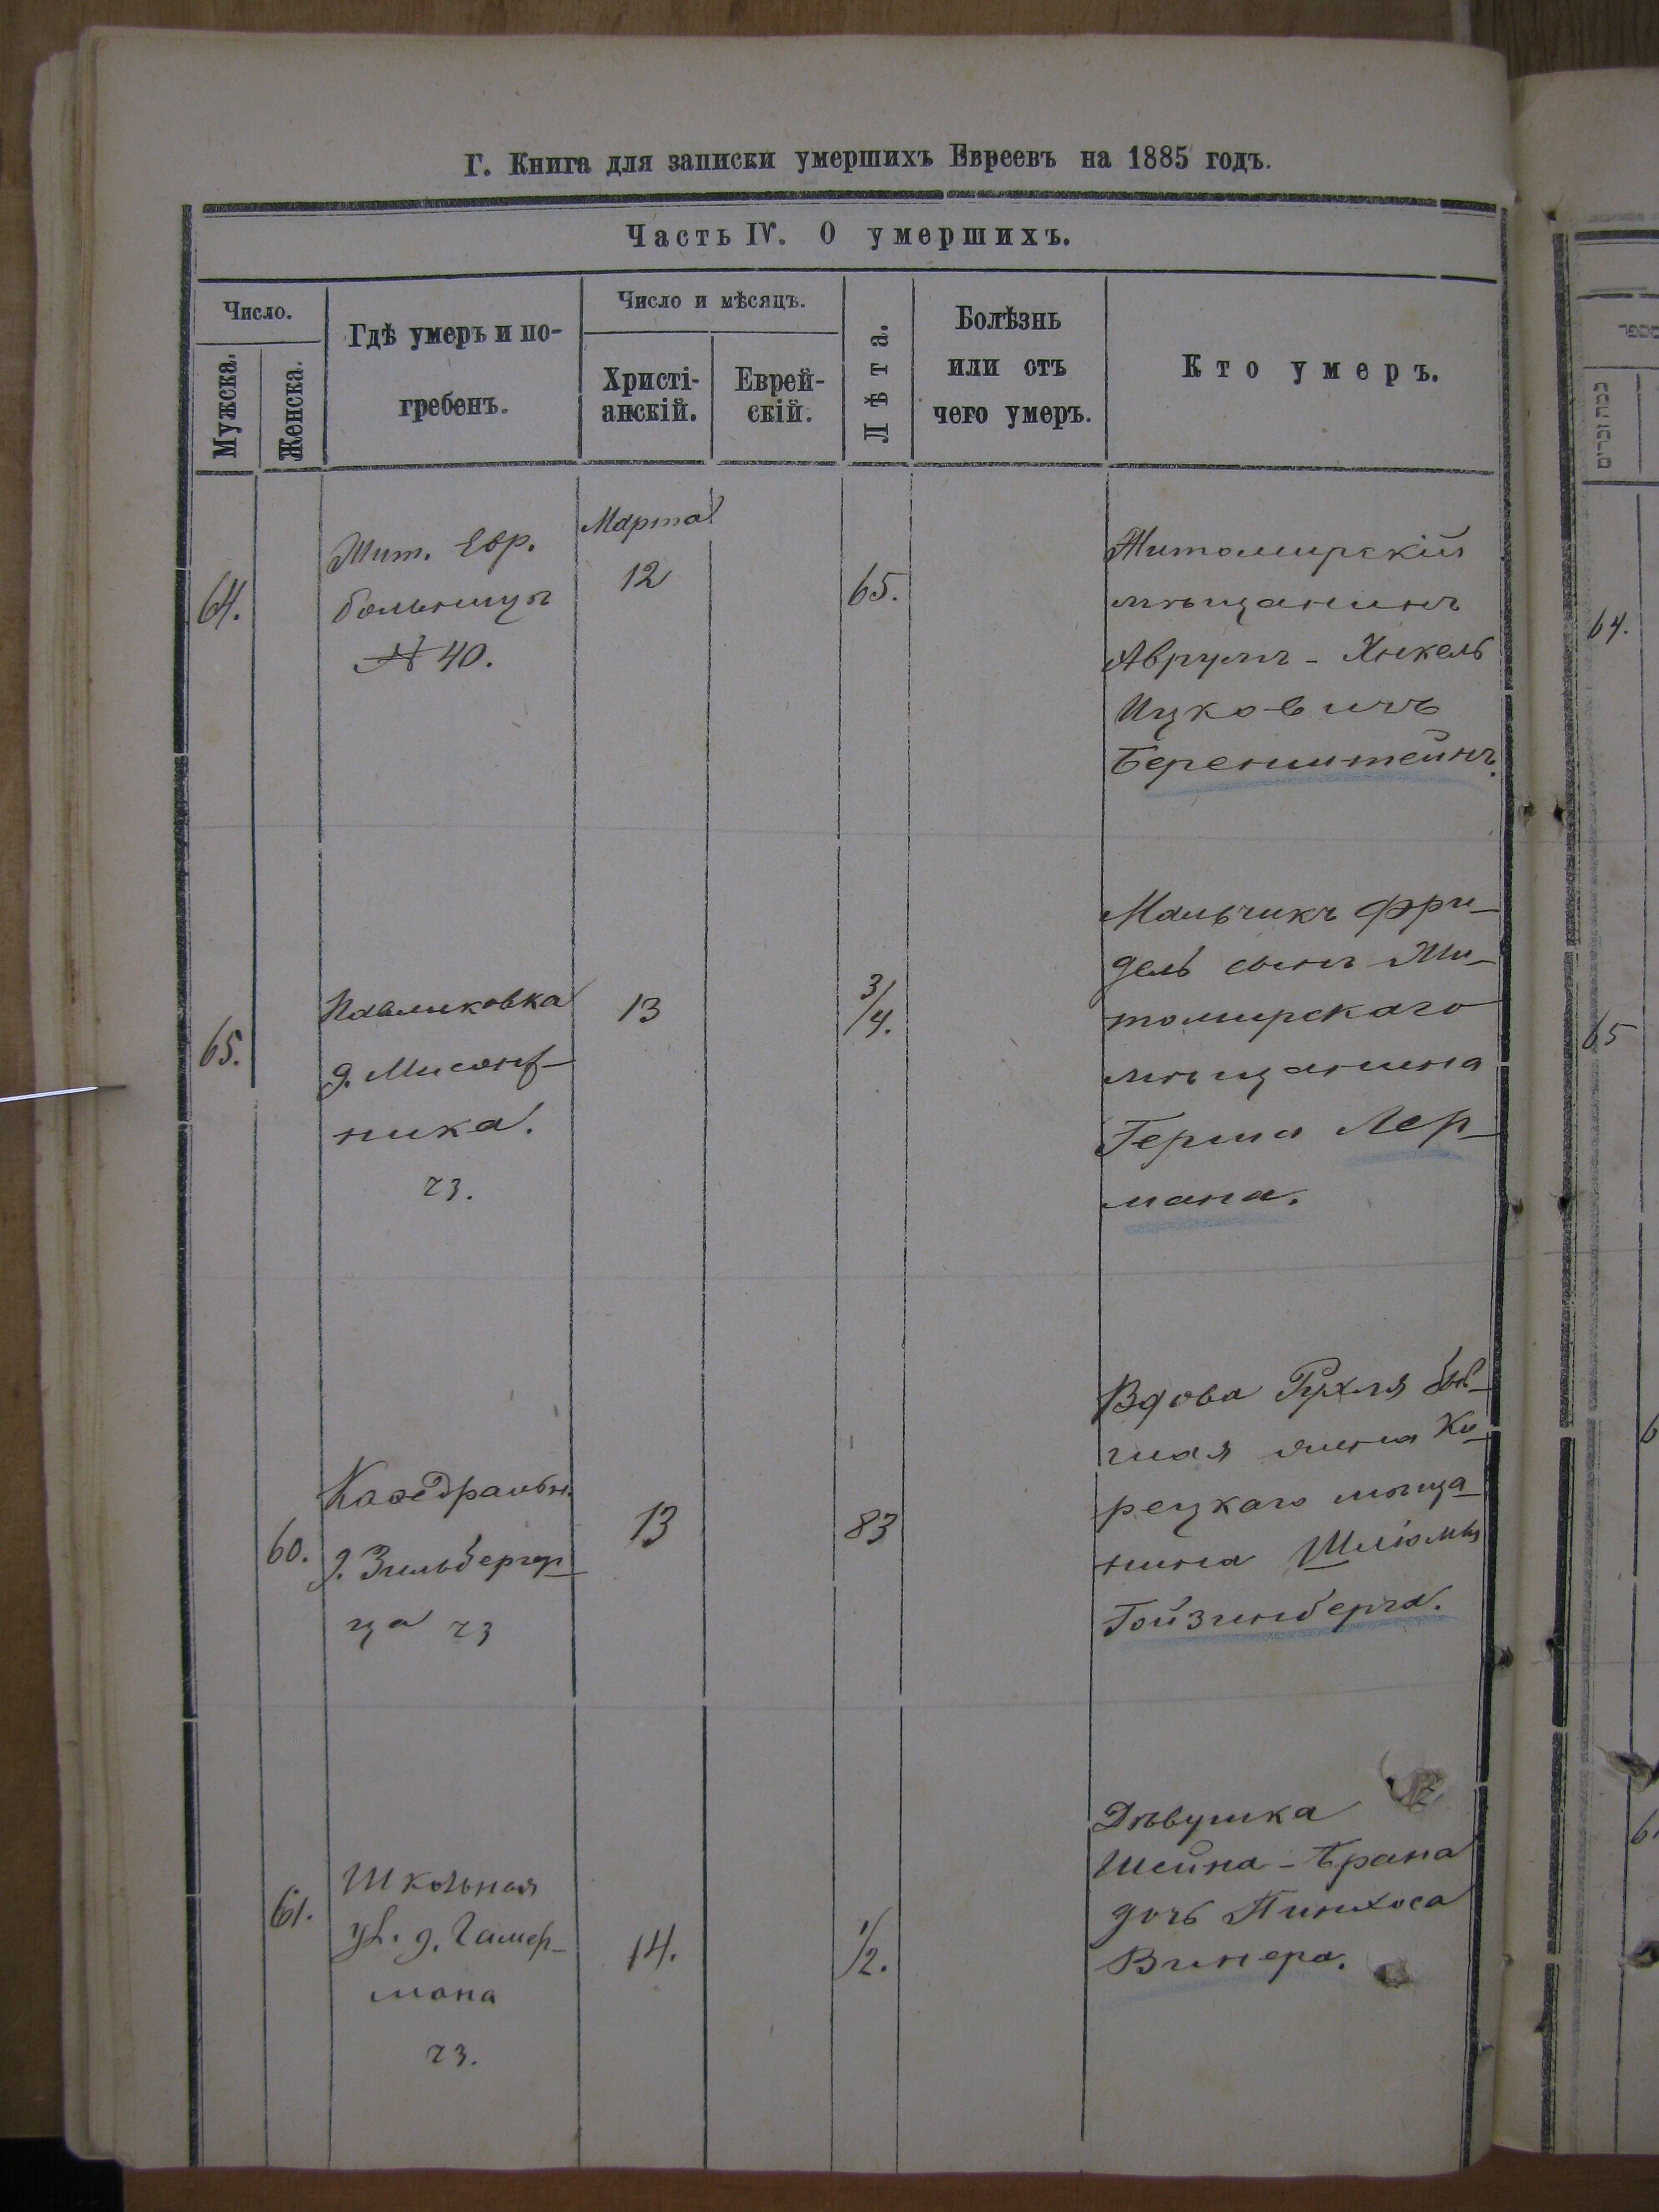 Г. Книга для записки умершихъ Евреевъ на 1885 годъ.
Часть IV. О умершихъ.
Число.
Мужска.
Женска.
Гдѣ умеръ и по-
гребенъ.
Число и мѣсяцъ.
Христі-
анскій.
Еврей-
скій.
Лѣта.
Болѣзнь
или отъ
чего умеръ.
Кто умеръ.
64.
Жит. Евр.
больницѣ
№ 40.
Марта
12
65.
Житомирскій
мѣщанинъ
Аврумъ - Янкель
Ицковичъ
Беренштейнъ.
64.
65.
Павликовка
д.
ника.
23.
13
3/4.
Мальчикъ Фри-
дель сынъ Жи-
томирскаго
мѣщанина
Герша Лер-
мана.
65
60.
Каѳедральн.
д. Зильбергер-
ца 23
13
83
Вдова Рухля быв-
шая жена Ко-
рецкаго мѣща-
нина Шлiомы
Гойзинберга.
61.
Школьная
ул. д. Гамер-
мана
23.
14.
1/2.
Дѣвушка
Шейна - Брана
дочь Пинхоса
Винера.